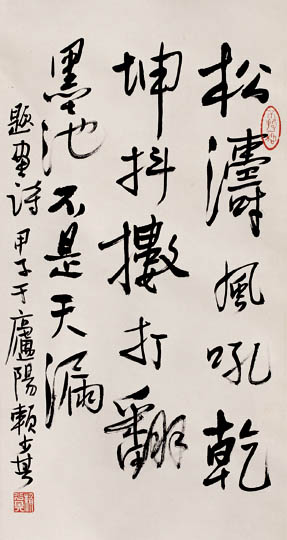 松濤風吼乾
坤抖擻打翻
墨池不是天漏
題畫詩 甲子于廬陽賴少其